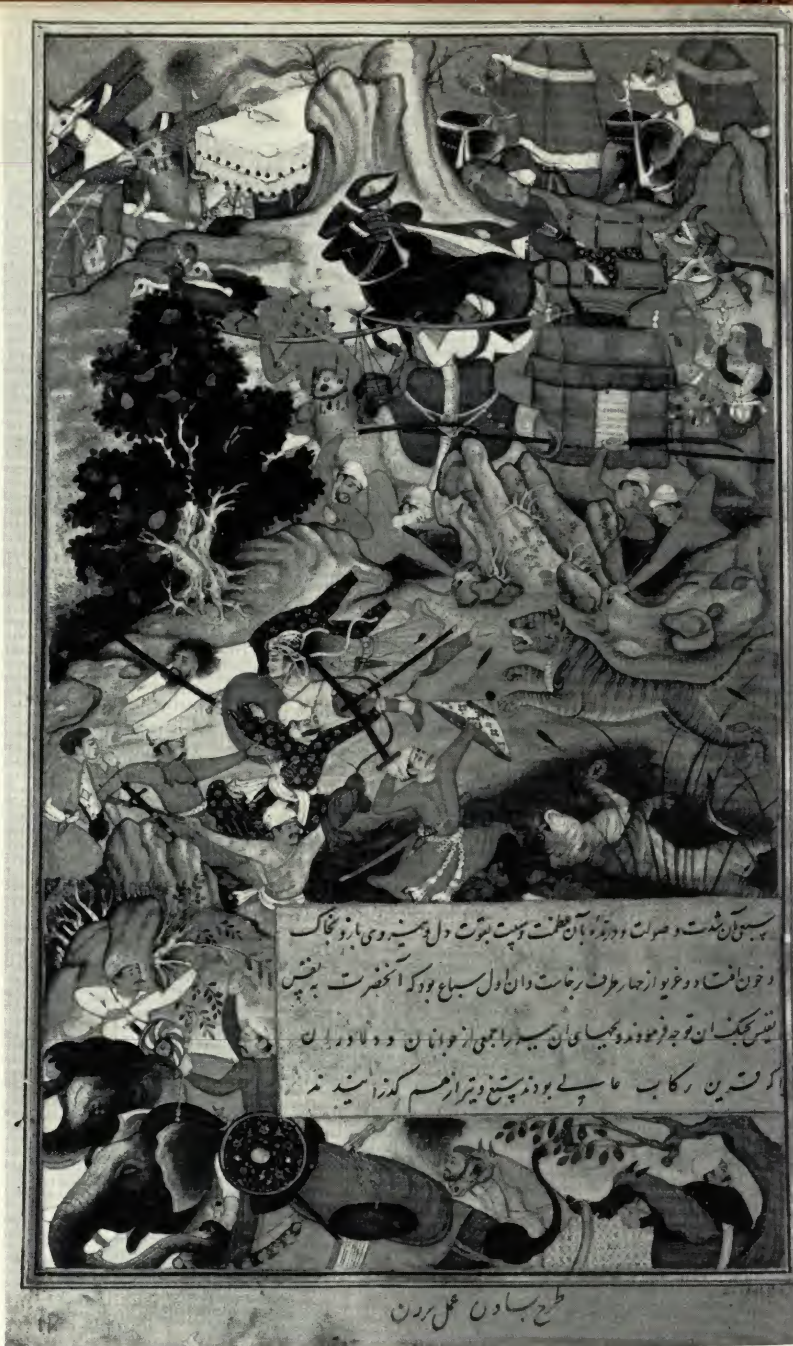 بسبعی آن شدت و صولت و درنده بآن عظمت و هیبت بقوت دل و نیروی بازو بخاک
و خون افتاد و غریو از چهار طرف برخاست و آن اول سباع بود که آنحضرت به نفس
نفیس بجنگ آن توجه فرمودند و بچهای آن را جمعی از جوانان و دلاوران
که قرین رکاب عالی بودند بتیغ و تیر از هم گذرانیدند
طرح بساون عمل